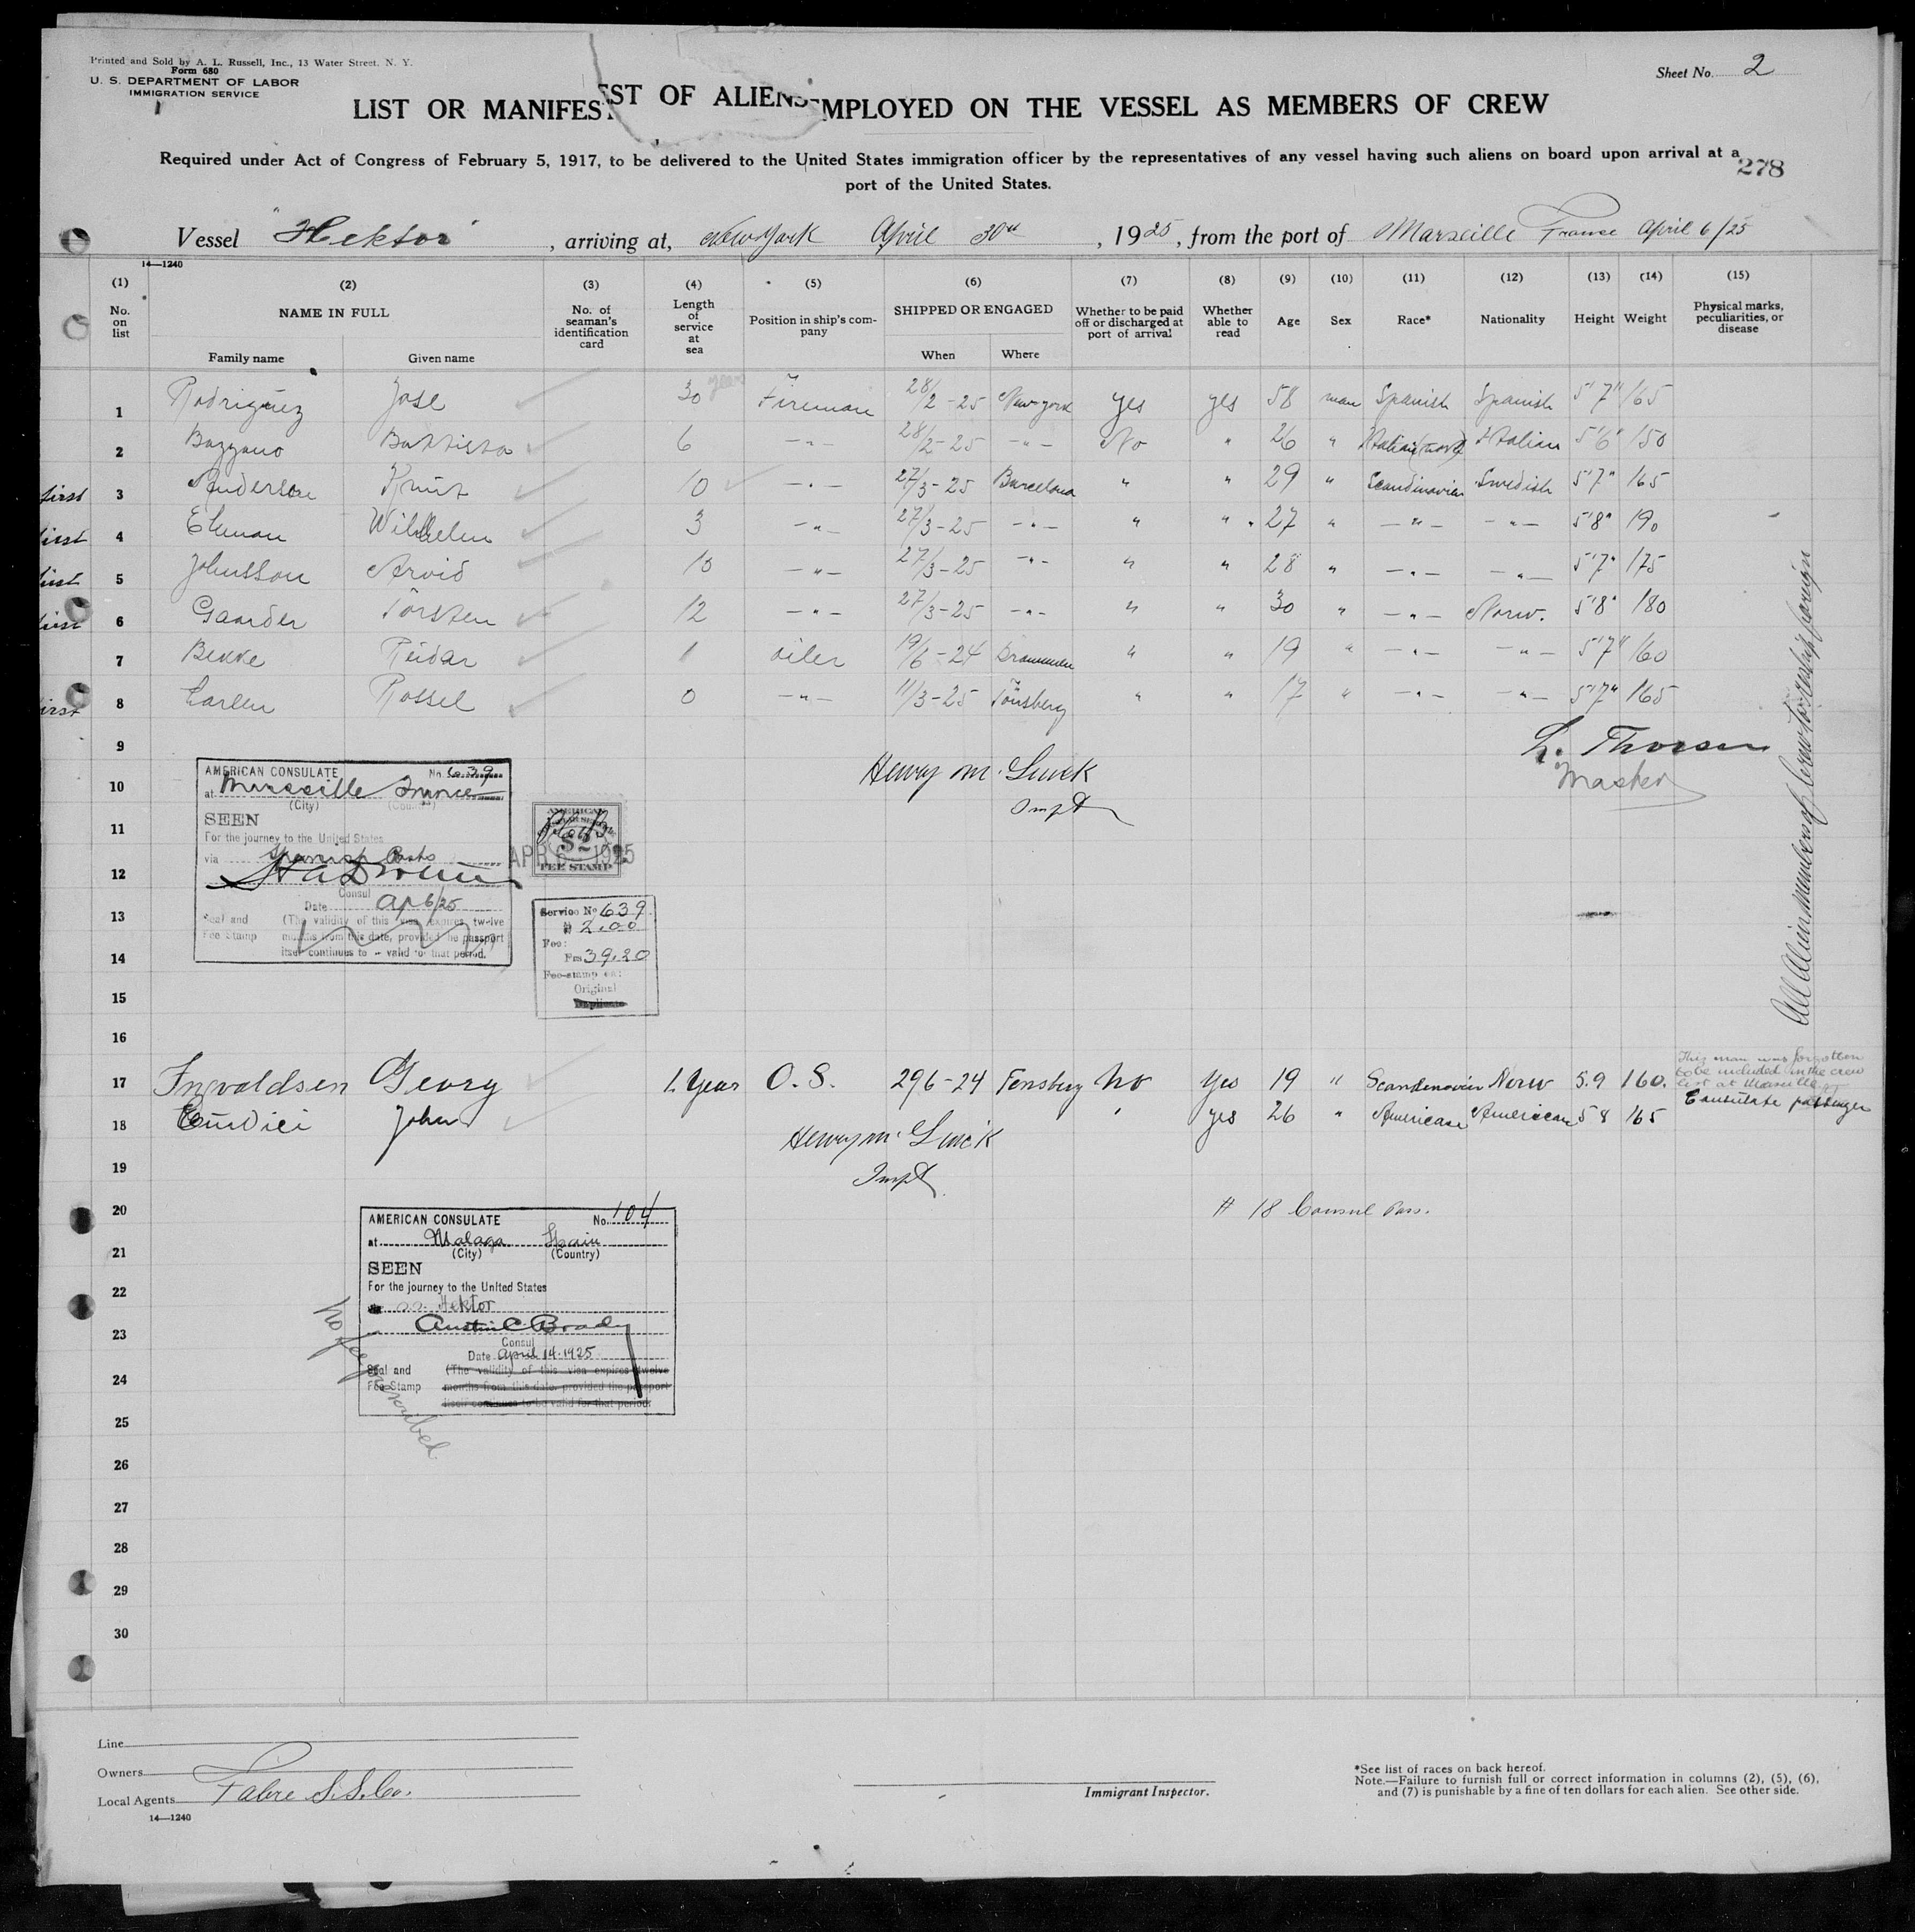 Printed and Sold by A. L. Russell, Inc., 13 Water Street, N. Y.
Form 680
U. S. DEPARTMENT OF LABOR
IMMIGRATION SERVICE
Sheet No. 2
LIST OR MANIFEST OF ALIENS EMPLOYED ON THE VESSEL AS MEMBERS OF CREW
Required under Act of Congress of February 5, 1917, to be delivered to the United States immigration officer by the representatives of any vessel having such aliens on board upon arrival at a
port of the United States.
278
Vessel "Hektor", arriving at, New York April 30th, 1925, from the port of Marseille France April 6/25
14—1240
(1) (2) (3) (4) (5) (6) (7) (8) (9) (10) (11) (12) (13) (14) (15)
No. on list NAME IN FULL No. of seaman's identification card Length of service at sea Position in ship's company SHIPPED OR ENGAGED Whether to be paid off or discharged at port of arrival Whether able to read Age Sex Race* Nationality Height Weight Physical marks, peculiarities, or disease
Family name Given name When Where
1 Rodriguez Jose 30 years Fireman 28/2-25 New-york yes yes 58 man Spanish Spanish 5'7" 165
2 Bozzano Battista 6 -"- 28/2-25 -"- No " 26 " Italian (north) Italian 5'6" 150
first 3 Anderson Knut 10 -"- 27/3-25 Barcelona " " 29 " Scandinavian Swedish 5'7" 165
first 4 Ekman Wilhelm 3 -"- 27/3-25 -"- " " 27 " -"- -"- 5'8" 190
first 5 Johnsson Arvid 10 -"- 27/3-25 -"- " " 28 " -"- -"- 5'7" 175
first 6 Gaarder Torsten 12 -"- 27/3-25 -"- " " 30 " -"- Norw. 5'8" 180
7 Bekke Reidar 1 oiler 19/6-24 Drammen " " 19 " -"- -"- 5'7" 160
first 8 Carlen Rossel 0 -"- 11/3-25 Tönsberg " " 17 " -"- -"- 5'7" 165
9
L. Thorsen
Master
10
Henry M. Luick
Inspt
11
12
13
14
15
16
AMERICAN CONSULATE No. 639
at Marseille France
(City) (Country)
SEEN
For the journey to the United States
via Spanish Ports
Consul
Date Ap 6/25
Seal and Fee Stamp (The validity of this visa expires twelve
months from this date, provided the passport
itself continues to valid for that period.
AMERICAN
$2
FEE STAMP
APR 1925
Service No 639
$ 2.00
Fee:
Frs 39.20
Fee-stamp on:
Original
Duplicate
All Alien members of Crew for reship foreign
This man was forgotten
to be included in the crew
list at Marseille
17 Ingvoldsen Georg 1. Year O. S. 296-24 Tonsberg No Yes 19 " Scandinavian Norw 5.9 160.
Consulate passenger
18 John ' yes 26 " American American 5 8 165
Henry M. Luick
Inspt
19
20
# 18 Consul Pass.
AMERICAN CONSULATE No. 104
at Malaga Spain
(City) (Country)
SEEN
For the journey to the United States
s.s. Hektor
Austin C Brady
Consul
Date April 14-1925
Seal and Fee Stamp (The validity of this visa expires twelve
months from this date, provided the passport
itself continues to be valid for that period.
No fee prescribed
21
22
23
24
25
26
27
28
29
30
Line
Owners
Local Agents Fabre S.S. Co.
14—1240
Immigrant Inspector.
*See list of races on back hereof.
Note.—Failure to furnish full or correct information in columns (2), (5), (6),
and (7) is punishable by a fine of ten dollars for each alien. See other side.